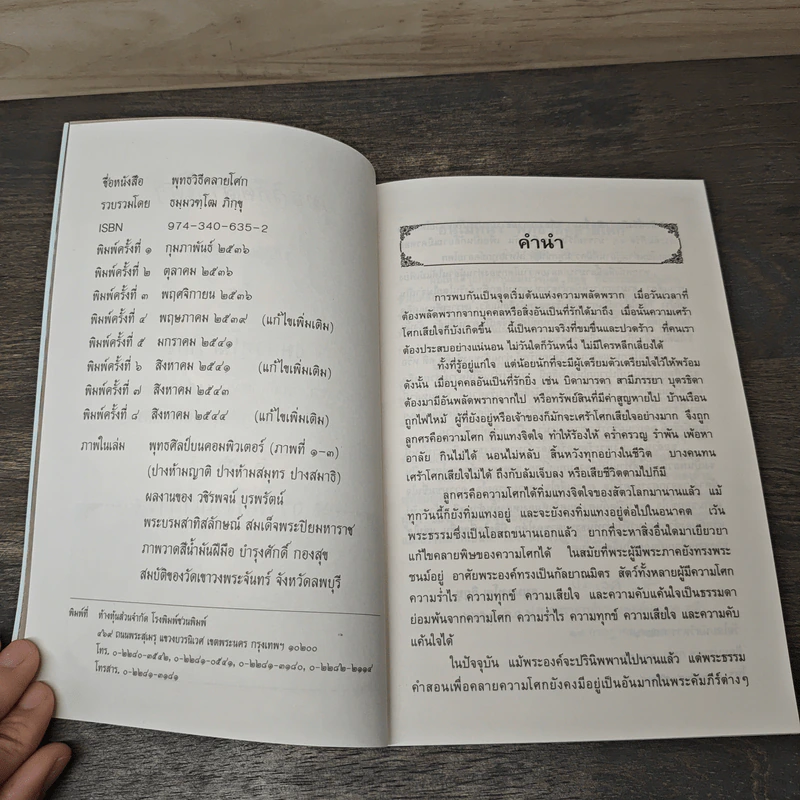 ชื่อหนังสือ พุทธวิธีคลายโศก
รวบรวมโดย ธมฺมวฑฺโฒ ภิกฺขุ
ISBN 974-340-635-2
พิมพ์ครั้งที่ ๑ กุมภาพันธ์ ๒๕๓๖
พิมพ์ครั้งที่ ๒ ตุลาคม ๒๕๓๖
พิมพ์ครั้งที่ ๓ พฤศจิกายน ๒๕๓๖
พิมพ์ครั้งที่ ๔ พฤษภาคม ๒๕๓๙ (แก้ไขเพิ่มเติม)
พิมพ์ครั้งที่ ๕ มกราคม ๒๕๔๑
พิมพ์ครั้งที่ ๖ สิงหาคม ๒๕๔๑ (แก้ไขเพิ่มเติม)
พิมพ์ครั้งที่ ๗ สิงหาคม ๒๕๔๓
พิมพ์ครั้งที่ ๘ สิงหาคม ๒๕๔๔ (แก้ไขเพิ่มเติม)
ภาพในเล่ม พุทธศิลป์บนคอมพิวเตอร์ (ภาพที่ ๑-๓)
(ปางห้ามญาติ ปางห้ามสมุทร ปางสมาธิ)
ผลงานของ วชิรพจน์ บุรพรัตน์
พระบรมสาทิสลักษณ์ สมเด็จพระปิยมหาราช
ภาพวาดสีน้ำมันฝีมือ บำรุงศักดิ์ กองสุข
สมบัติของวัดเขาวงพระจันทร์ จังหวัดลพบุรี
พิมพ์ที่ ห้างหุ้นส่วนจำกัด โรงพิมพ์ชวนพิมพ์
๔๖๙ ถนนพระสุเมรุ แขวงบวรนิเวศ เขตพระนคร กรุงเทพฯ ๑๐๒๐๐
โทร. ๐-๒๒๘๐-๓๕๔๒, ๐-๒๒๘๑-๐๕๔๑, ๐-๒๒๘๑-๓๑๘๐, ๐-๒๒๘๒-๒๑๑๔
โทรสาร. ๐-๒๒๘๑-๓๑๘๑
คำนำ
การพบกันเป็นจุดเริ่มต้นแห่งความพลัดพราก เมื่อวันเวลาที่
ต้องพลัดพรากจากบุคคลหรือสิ่งอันเป็นที่รักได้มาถึง เมื่อนั้นความเศร้า
โศกเสียใจก็บังเกิดขึ้น นี้เป็นความจริงที่ขมขื่นและปวดร้าว ที่คนเรา
ต้องประสบอย่างแน่นอน ไม่วันใดก็วันหนึ่ง ไม่มีใครหลีกเลี่ยงได้
ทั้งที่รู้อยู่แก่ใจ แต่น้อยนักที่จะมีผู้เตรียมตัวเตรียมใจไว้ให้พร้อม
ดังนั้น เมื่อบุคคลอันเป็นที่รักยิ่ง เช่น บิดามารดา สามีภรรยา บุตรธิดา
ต้องมามีอันพลัดพรากจากไป หรือทรัพย์สินที่มีค่าสูญหายไป บ้านเรือน
ถูกไฟไหม้ ผู้ที่ยังอยู่หรือเจ้าของก็มักจะเศร้าโศกเสียใจอย่างมาก จึงถูก
ลูกศรคือความโศก ทิ่มแทงจิตใจ ทำให้ร้องไห้ คร่ำครวญ รำพัน เพ้อหา
อาลัย กินไม่ได้ นอนไม่หลับ สิ้นหวังทุกอย่างในชีวิต บางคนทน
เศร้าโศกเสียใจไม่ได้ ถึงกับล้มเจ็บลง หรือเสียชีวิตตามไปก็มี
ลูกศรคือความโศกได้ทิ่มแทงจิตใจของสัตว์โลกมานานแล้ว แม้
ทุกวันนี้ก็ยังทิ่มแทงอยู่ และจะยังคงทิ่มแทงอยู่ต่อไปในอนาคต เว้น
พระธรรมซึ่งเป็นโอสถขนานเอกแล้ว ยากที่จะหาสิ่งอื่นใดมาเยียวยา
แก้ไขคลายพิษของความโศกได้ ในสมัยที่พระผู้มีพระภาคยังทรงพระ
ชนม์อยู่ อาศัยพระองค์ทรงเป็นกัลยาณมิตร สัตว์ทั้งหลายผู้มีความโศก
ความร่ำไร ความทุกข์ ความเสียใจ และความคับแค้นใจเป็นธรรมดา
ย่อมพ้นจากความโศก ความร่ำไร ความทุกข์ ความเสียใจ และความคับ
แค้นใจได้
ในปัจจุบัน แม้พระองค์จะปรินิพพานไปนานแล้ว แต่พระธรรม
คำสอนเพื่อคลายความโศกยังคงมีอยู่เป็นอันมากในพระคัมภีร์ต่างๆ